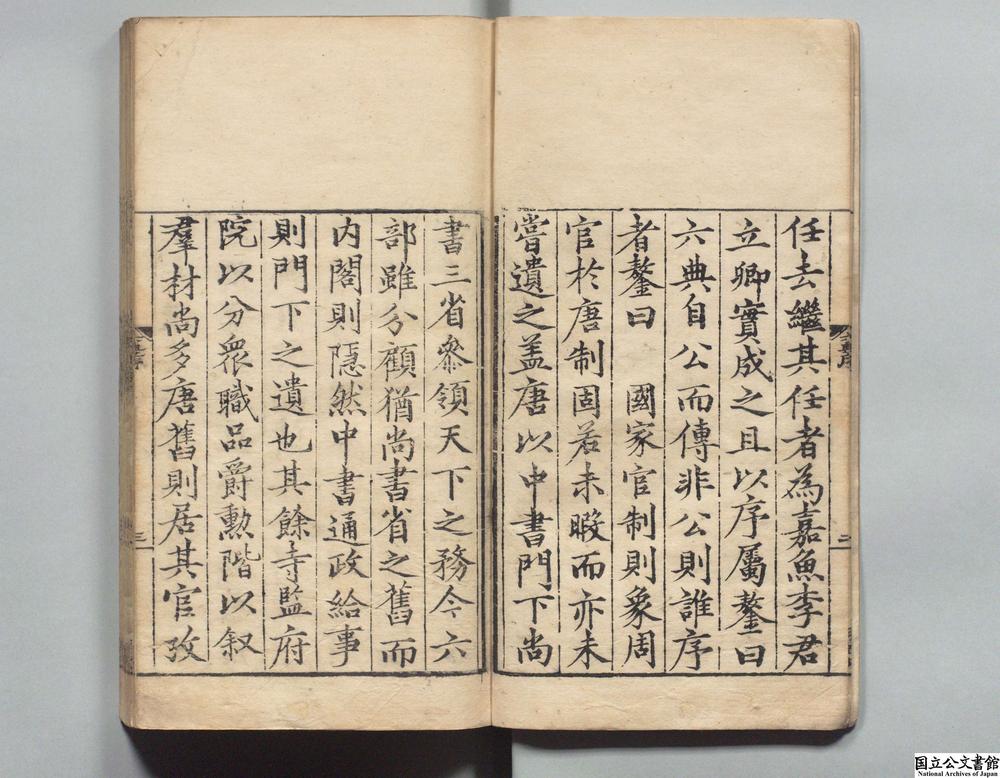 任去繼其任者為嘉魚李君
立卿實成之且以序屬鏊曰
六典自公而傳非公則誰序
者鏊曰　國家官制則象周
官於唐制固若未暇而亦未
嘗遺之盖唐以中書門下尚
二
書三省叅領天下之務今六
部雖分顧猶尚書省之舊而
内閣則隱然中書通政給事
則門下之遺也其餘寺監府
院以分衆職品爵勳階以叙
羣材尚多唐舊則居其官攷
三
国立公文書館
National Archives of Japan